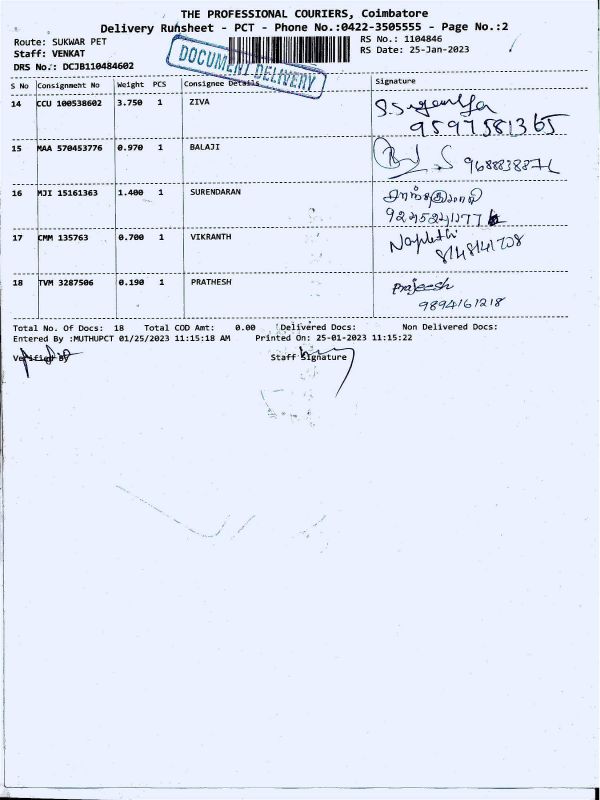 THE PROFESSIONAL COURIERS, Coimbatore
Delivery Runsheet - PCT - Phone No.:0422-3505555 - Page No.:2
Route: SUKWAR PET
RS No.: 1104846
Staff: VENKAT
RS Date: 25-Jan-2023
DRS No.: DCJB110484602
DOCUMENT DELIVERY
S No Consignment No Weight PCS Consignee Details Signature
14 CCU 100538602 3.750 1 ZIVA
9597581365
15 MAA 570453776 0.970 1 BALAJI
16 MJI 15161363 1.400 1 SURENDARAN
17 CMM 135763 0.700 1 VIKRANTH
18 TVM 3287506 0.190 1 PRATHESH Prajeesh
9894161218
Total No. Of Docs: 18 Total COD Amt: 0.00 Delivered Docs: Non Delivered Docs:
Entered By :MUTHUPCT 01/25/2023 11:15:18 AM Printed On: 25-01-2023 11:15:22
Verified By Staff Signature